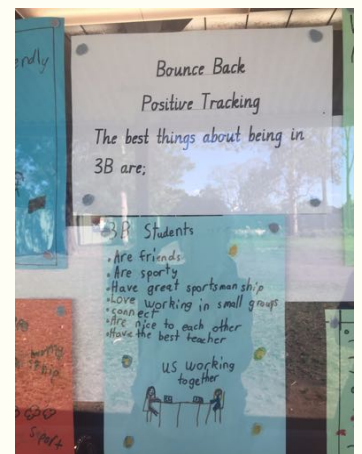 Bounce Back
Positive Tracking
The best things about being in
3B are;
3B Students
•Are friends
•Are sporty
•Have great sportsman ship
•Love working in small groups
•connect
•Are nice to each other
•Have the best teacher
us working
together